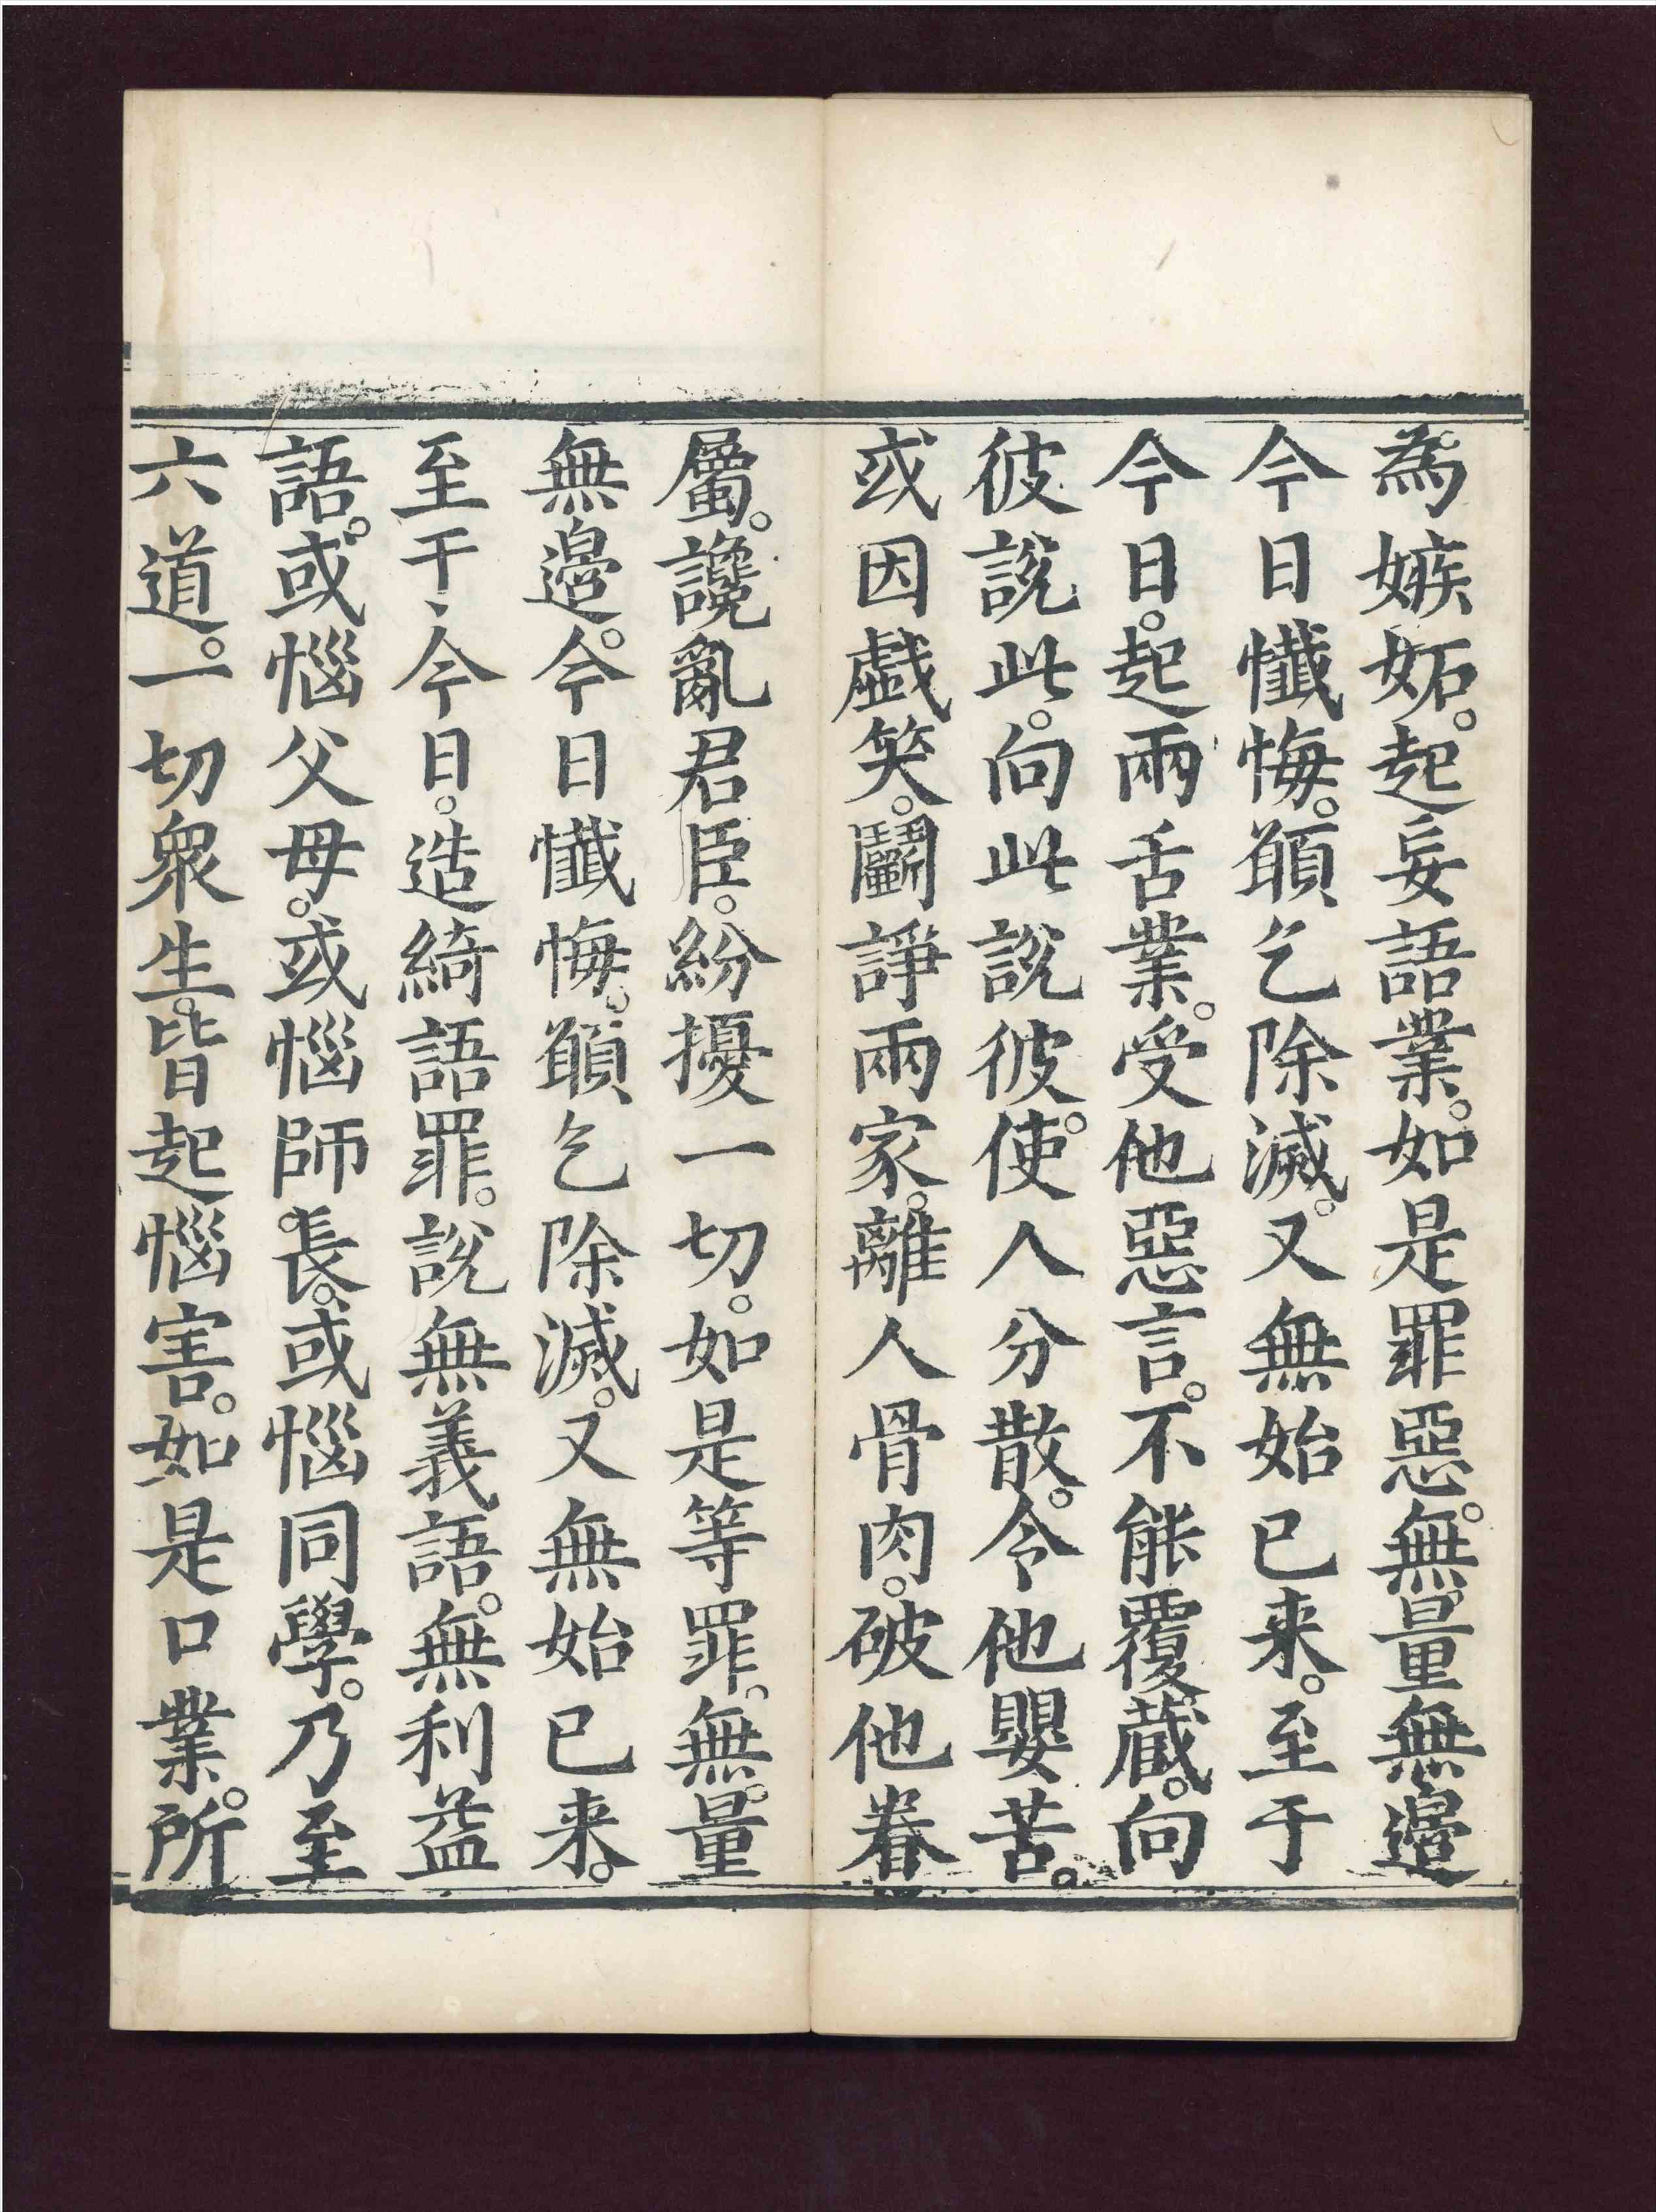 為嫉妬。起妄語業。如是罪惡。無量無邊
今日懺悔。願乞除滅。又無始已来。至于
今日。起兩舌業。受他惡言。不能覆蔵。向
彼說此。向此說彼。使人分散。令他嬰苦。
或因戯笑。鬭諍兩家。離人骨肉。破他眷
屬。讒亂君臣。紛擾一切。如是等罪。無量
無邊。今日懺悔。願乞除滅。又無始已来。
至于今日。造綺語罪。說無義語。無利益
語。或惱父母。或惱師長。或惱同學。乃至
六道。一切衆生。皆起惱害。如是口業。所